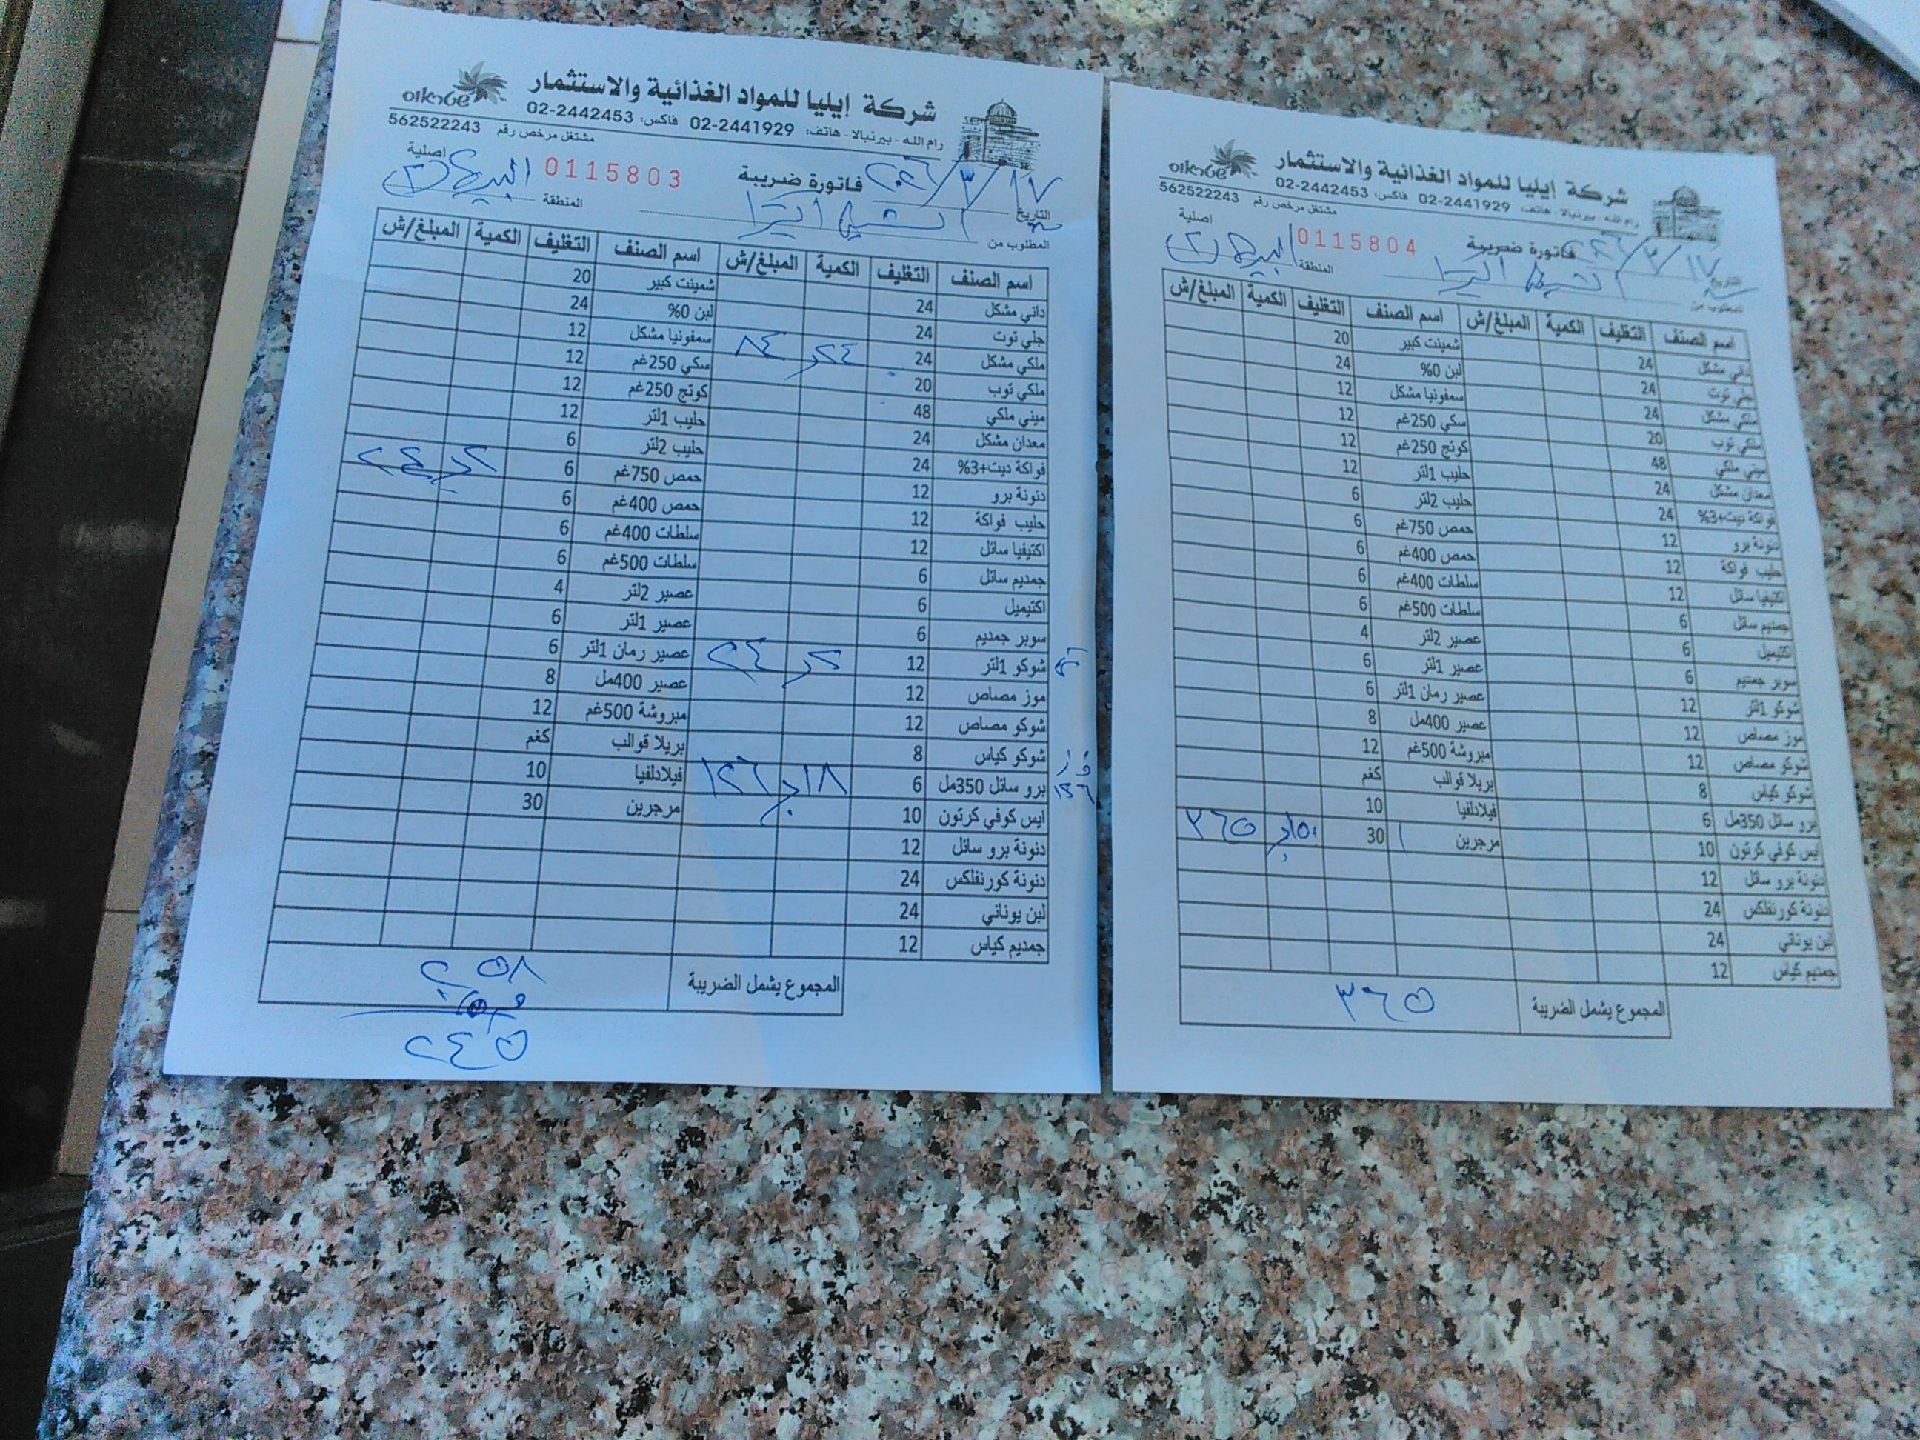 شركة إيليا للمواد الغذائية والاستثمار
رام الله - بيرنبالا - هاتف: 02-2441929 فاكس: 02-2442453
مشتغل مرخص رقم 562522243
فاتورة ضريبة 0115803 أصلية
التاريخ ١٧/٣/٢٠٢٦
المنطقة
المطلوب من
اسم الصنف التغليف الكمية المبلغ/ش اسم الصنف التغليف الكمية المبلغ/ش
داني مشكل 24 شمينت كبير 20
جلي توت 24 لبن 0% 24
ملكي مشكل 24 ٢٤ ٨٤ سمفونيا مشكل 12
ملكي توب 20 سكي 250غم 12
ميني ملكي 48 كوتج 250غم 12
معدان مشكل 24 حليب 1لتر 12
فواكة ديت+3% 24 حليب 2لتر 6
دنونة برو 12 حمص 750غم 6 ٢ ٢٤
حليب فواكة 12 حمص 400غم 6
اكتيفيا سائل 12 سلطات 400غم 6
جمديم سائل 6 سلطات 500غم 6
اكتيميل 6 عصير 2لتر 4
سوبر جمديم 6 عصير 1لتر 6
شوكو 1لتر 12 ٢ ٢٤ عصير رمان 1لتر 6
موز مصاص 12 عصير 400مل 8
شوكو مصاص 12 مبروشة 500غم 12
شوكو كياس 8 بريلا قوالب كغم
برو سائل 350مل 6 ١٨ ١٢٦ فيلادلفيا 10
ايس كوفي كرتون 10 مرجرين 30
دنونة برو سائل 12
دنونة كورنفلكس 24
لبن يوناني 24
جمديم كياس 12
المجموع يشمل الضريبة ٢٥٨
٢٤٥
شركة إيليا للمواد الغذائية والاستثمار
رام الله - بيرنبالا - هاتف: 02-2441929 فاكس: 02-2442453
مشتغل مرخص رقم 562522243
فاتورة ضريبة 0115804 أصلية
التاريخ ١٧/٣/٢٠٢٦
المنطقة
المطلوب من
اسم الصنف التغليف الكمية المبلغ/ش اسم الصنف التغليف الكمية المبلغ/ش
داني مشكل 24 شمينت كبير 20
جلي توت 24 لبن 0% 24
ملكي مشكل 24 سمفونيا مشكل 12
ملكي توب 20 سكي 250غم 12
ميني ملكي 48 كوتج 250غم 12
معدان مشكل 24 حليب 1لتر 12
فواكة ديت+3% 24 حليب 2لتر 6
دنونة برو 12 حمص 750غم 6
حليب فواكة 12 حمص 400غم 6
اكتيفيا سائل 12 سلطات 400غم 6
جمديم سائل 6 سلطات 500غم 6
اكتيميل 6 عصير 2لتر 4
سوبر جمديم 6 عصير 1لتر 6
شوكو 1لتر 12 عصير رمان 1لتر 6
موز مصاص 12 عصير 400مل 8
شوكو مصاص 12 مبروشة 500غم 12
شوكو كياس 8 بريلا قوالب كغم
برو سائل 350مل 6 فيلادلفيا 10
ايس كوفي كرتون 10 مرجرين 30 ٣٦٥
دنونة برو سائل 12
دنونة كورنفلكس 24
لبن يوناني 24
جمديم كياس 12
المجموع يشمل الضريبة ٣٦٥